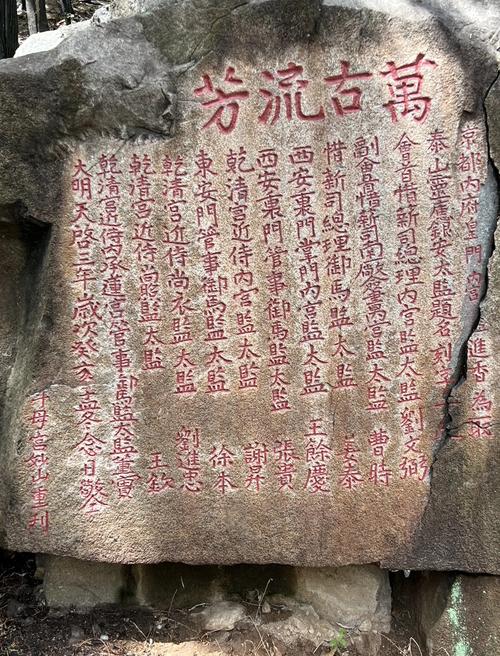 萬古流芳
京都內府皇門內 進香 為
泰山靈應銀安太監題名刻
會首惜新司總理內宮監太監 劉文弼
副會首惜新司南廠僉書內宮監太監 曹時
惜新司總理御馬監太監 姜泰
西安裏門掌門內宮監太監 王餘慶
西安裏門管事御馬監太監 張貴
乾清宮近侍內宮監太監 謝昇
東安門管事御馬監太監 徐本
乾清宮近侍尚衣監太監 劉進忠
乾清宮近侍尚膳監太監 王欽
乾清宮近侍 管事御馬監太監
大明天啓三年歲次癸亥孟冬念日
斗母宮妙山重刊